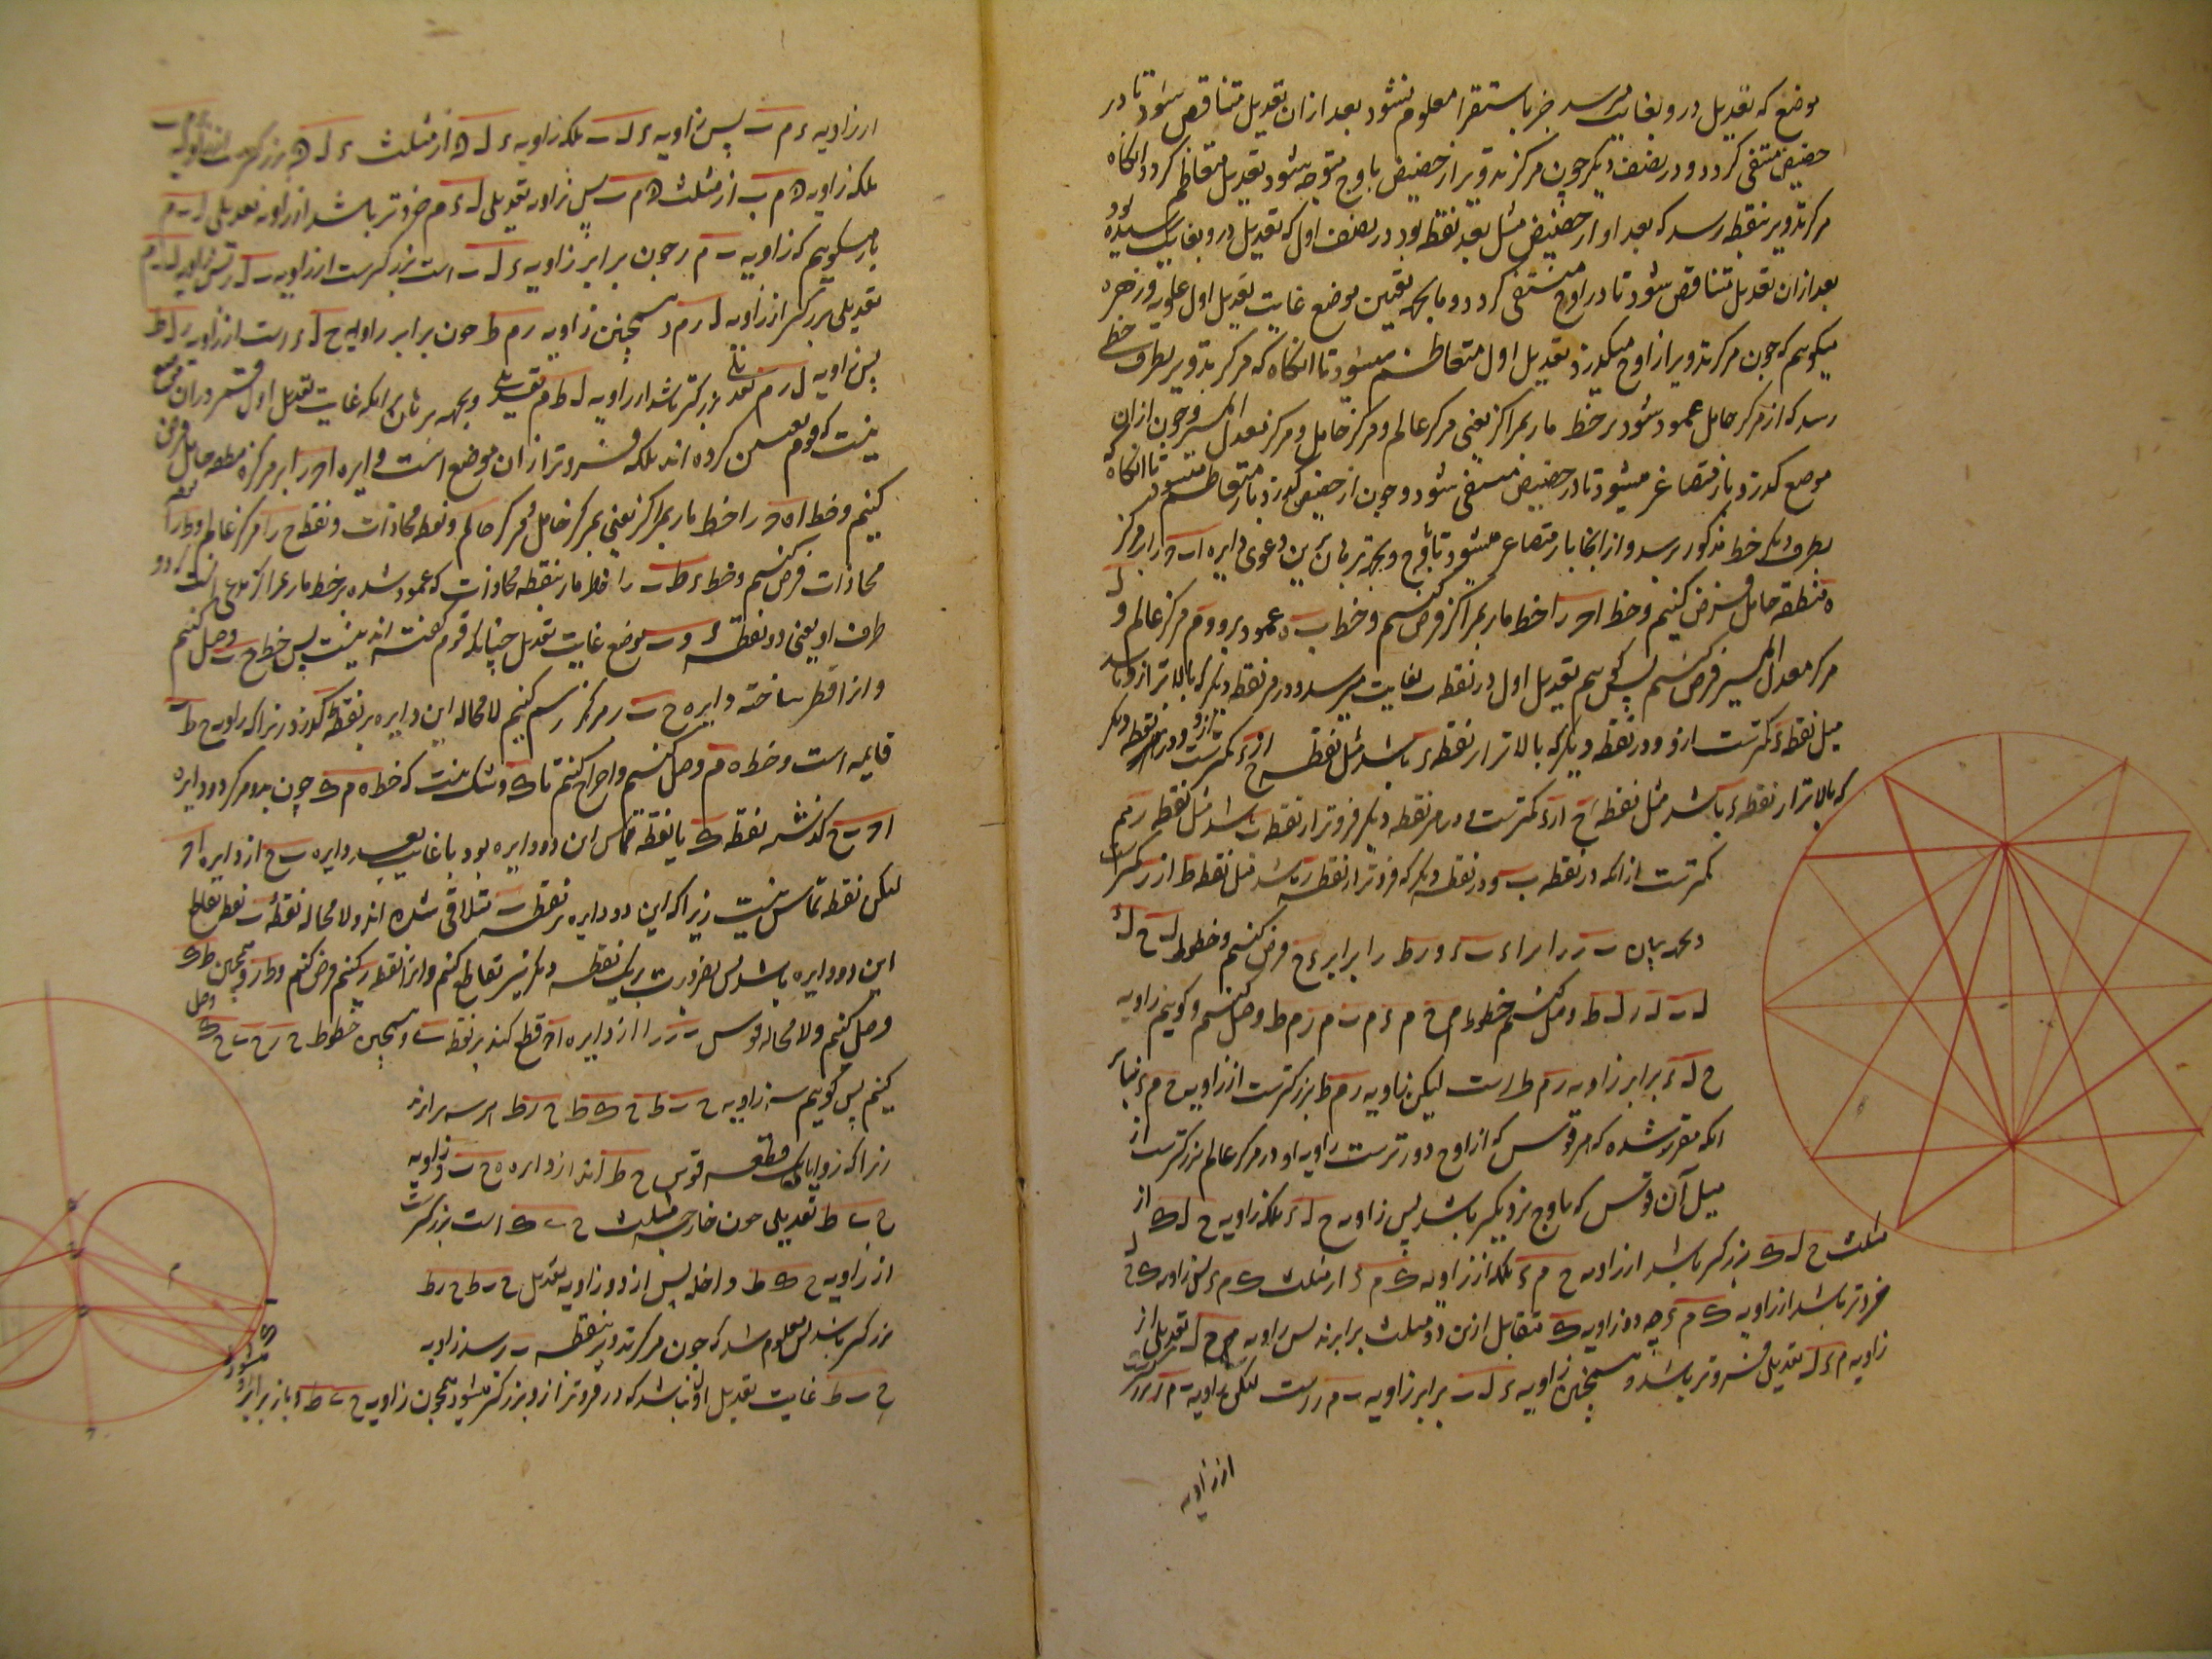 موضع که تعدیل درو بغایت میرسد جز باستقرا معلوم نشود بعد ازان تعدیل متناقص شود تا در
حضیض منتفی کردد و در نصف دیکر چون مرکز تدویر از حضیض باوج متوجه شود تعدیل متعاظم کردد تا انکاه
مرکز تدویر بنقطه رسد که بعد او از حضیض مثل بعد نقطه بود در نصف اول که تعدیل درو بغایت رسیده بود
بعد ازان تعدیل متناقص شود تا در اوج منتفی کردد و ما بجهه تعیین موضع غایت تعدیل اول علویه و زهره
میکوییم که چون مرکز تدویر از اوج میکذرد تعدیل اول متعاظم میشود تا انکاه که مرکز تدویر بطرف خطی
رسد که از مرکز حامل عمود شود بر خط مار بمراکز یعنی مرکز عالم و مرکز حامل و مرکز معدل المسیر و چون ازان
موضع کذرد باز متصاغر میشود تا در حضیض منتفی شود و چون از حضیض کذرد باز متعاظم میشود تا انکاه که
بطرف دیکر خط مذکور برسد و از انجا باز متصاغر میشود تا باوج و بجهه برهان برین دعوی دایره ا ب ر را بر مرکز
ه منطقه حامل فرض کنیم و خط ا ر را خط مار بمراکز فرض کنیم و خط ب ه عمود برو و م مرکز عالم و ل
مرکز معدل المسیر فرض کنیم پس کوییم تعدیل اول در نقطه ب بغایت میرسد و در هر نقطه دیکر که بالاتر ازو باشد
مثل نقطه ء کمترست ازو و در نقطه دیکر که بالاتر از نقطه ء باشد مثل نقطه ح از ء کمترست
که بالاتر از نقطه ء باشد مثل نقطه ح از ء کمترست و در هر نقطه دیکر فروتر از نقطه ب باشد مثل نقطه ر هم
کمترست ازانکه در نقطه ب و در نقطه دیکر که فروتر از نقطه ر باشد مثل نقطه ط از ر کمترست
و بجهه بیان ب ر را برابر ب ء و ر ط را برابر ء ح فرض کنیم و خطوط ل ح ل ء
ل ب ل ر ل ط وصل کنیم و خطوط م ح م ء م ب م ر م ط وصل کنیم و کوییم زاویه
ح ل ء برابر زاویه ر م ط است لیکن زاویه ر م ط بزرکترست از زاویه ح م ء بنا بر
انکه مقرر شده که هر قوس که از اوج دورترست زاویه او در مرکز عالم بزرکترست از
مثل آن قوس که باوج نزدیکتر باشد پس زاویه ح ل ء بلکه زاویه ح ل ک از
مثلث ح ل ک بزرکتر باشد از زاویه ح م ء بلکه از زاویه ک م ء از مثلث ک م ء پس زاویه ک ح ل
خردتر باشد از زاویه ک ء م چه دو زاویه ک متقابل ازین دو مثلث برابرند پس زاویه م ح ل تعدیلی از
زاویه م ء ل تعدیلی خردتر باشد و همچنین زاویه ء ل ب برابر زاویه ب م ر است لیکن زاویه ب م ر بزرکترست
از زاویه
از زاویه ء م ب پس زاویه ء ل ب بلکه زاویه ء ل ه از مثلث ء ل ه بزرکترست از زاویه ء م ب
بلکه زاویه ه م ب از مثلث ه م ب پس زاویه تعدیلی ل ء م خردتر باشد از زاویه تعدیلی ل ب م
باز میکوییم که زاویه ب م ر چون برابر زاویه ء ل ب است بزرکترست از زاویه ب ل ر پس زاویه ل ب م
تعدیلی بزرکتر از زاویه ل ر م و همچنین زاویه ر م ط چون برابر زاویه ح ل ء است از زاویه ر ل ط
پس زاویه ل ر م تعدیلی بزرکتر باشد از زاویه ل ط م تعدیلی و بجهه برهان برانکه غایت تعدیل اول قمر دران موضع
نیست که قوم تعیین کرده اند بلکه فروتر ازان موضع است دایره ا ر را بر مرکز ه منطقه حامل فرض
کنیم و خط ا ه ر را خط مار بمراکز یعنی بمرکز حامل و مرکز عالم و نقطه محاذات و نقطه ح را مرکز عالم و ط را نقطه
محاذات فرض کنیم و خط ء ط ب را خط مار بنقطه محاذات که عمود شده بر خط مار بمراکز
طرف او یعنی دو نقطه ء و ب موضع غایت تعدیل چنانکه قوم کفته اند نیست پس خط ح ب وصل کنیم
و انرا قطر ساخته دایره ح ب ر مرکز رسم کنیم لا محاله این دایره بر نقطه ط کذرد زیراکه زاویه ح ط ب
قایمه است و خط ه م وصل کنیم و اخراج کنیم تا ک و شک نیست که خط ه م ک چون بدو مرکز دو دایره
ا ر ب ح کذشته نقطه ک یا نقطه تماس این دو دایره بود یا غایت بعد دایره ب ح از دایره ا ر
لیکن نقطه تماس نیست زیراکه این دو دایره بر نقطه ب متلاقی شده اند و لا محاله نقطه ب نقطه تقاطع
این دو دایره باشد پس بضرورت بر یک نقطه دیکر نیز تقاطع کنند و انرا نقطه ر فرض کنیم و ط ر و همچنین ط ک
وصل کنیم و لا محاله قوس ب ر را از دایره ا ر قطع کند بر نقطه س و همچنین خطوط ح ر ح س ح ک وصل
کنیم پس کوییم سه زاویه ح ب ط ح ک ط ح ر ط هر سه برابرند
زیراکه زوایای یک قطعه قوس ح ط اند از دایره ح ب و زاویه
ح س ط تعدیلی چون خارجه مثلث ح س ک است بزرکترست
از زاویه ح ک ط داخله پس از دو زاویه تعدیل ح ب ط ح ر ط
بزرکتر باشد پس معلوم شد که چون مرکز تدویر بنقطه ب رسد زاویه
ح ب ط غایت تعدیل اول نباشد که در فروتر ازو بزرکتر میشود همچون زاویه ح س ط و باز برابر او میشود